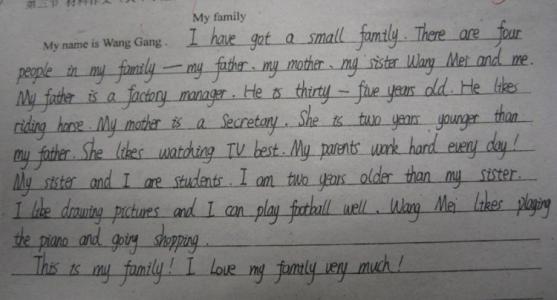 My family
My name is Wang Gang. I have got a small family. There are four
people in my family — my father, my mother, my sister Wang Mei and me.
My father is a factory manager. He is thirty-five years old. He likes
riding horse. My mother is a Secretary. She is two years younger than
my father. She likes watching TV best. My parents work hard every day!
My sister and I are students. I am two years older than my sister.
I like drawing pictures and I can play football well. Wang Mei likes playing
the piano and going shopping.
This is my family! I Love my family very much!